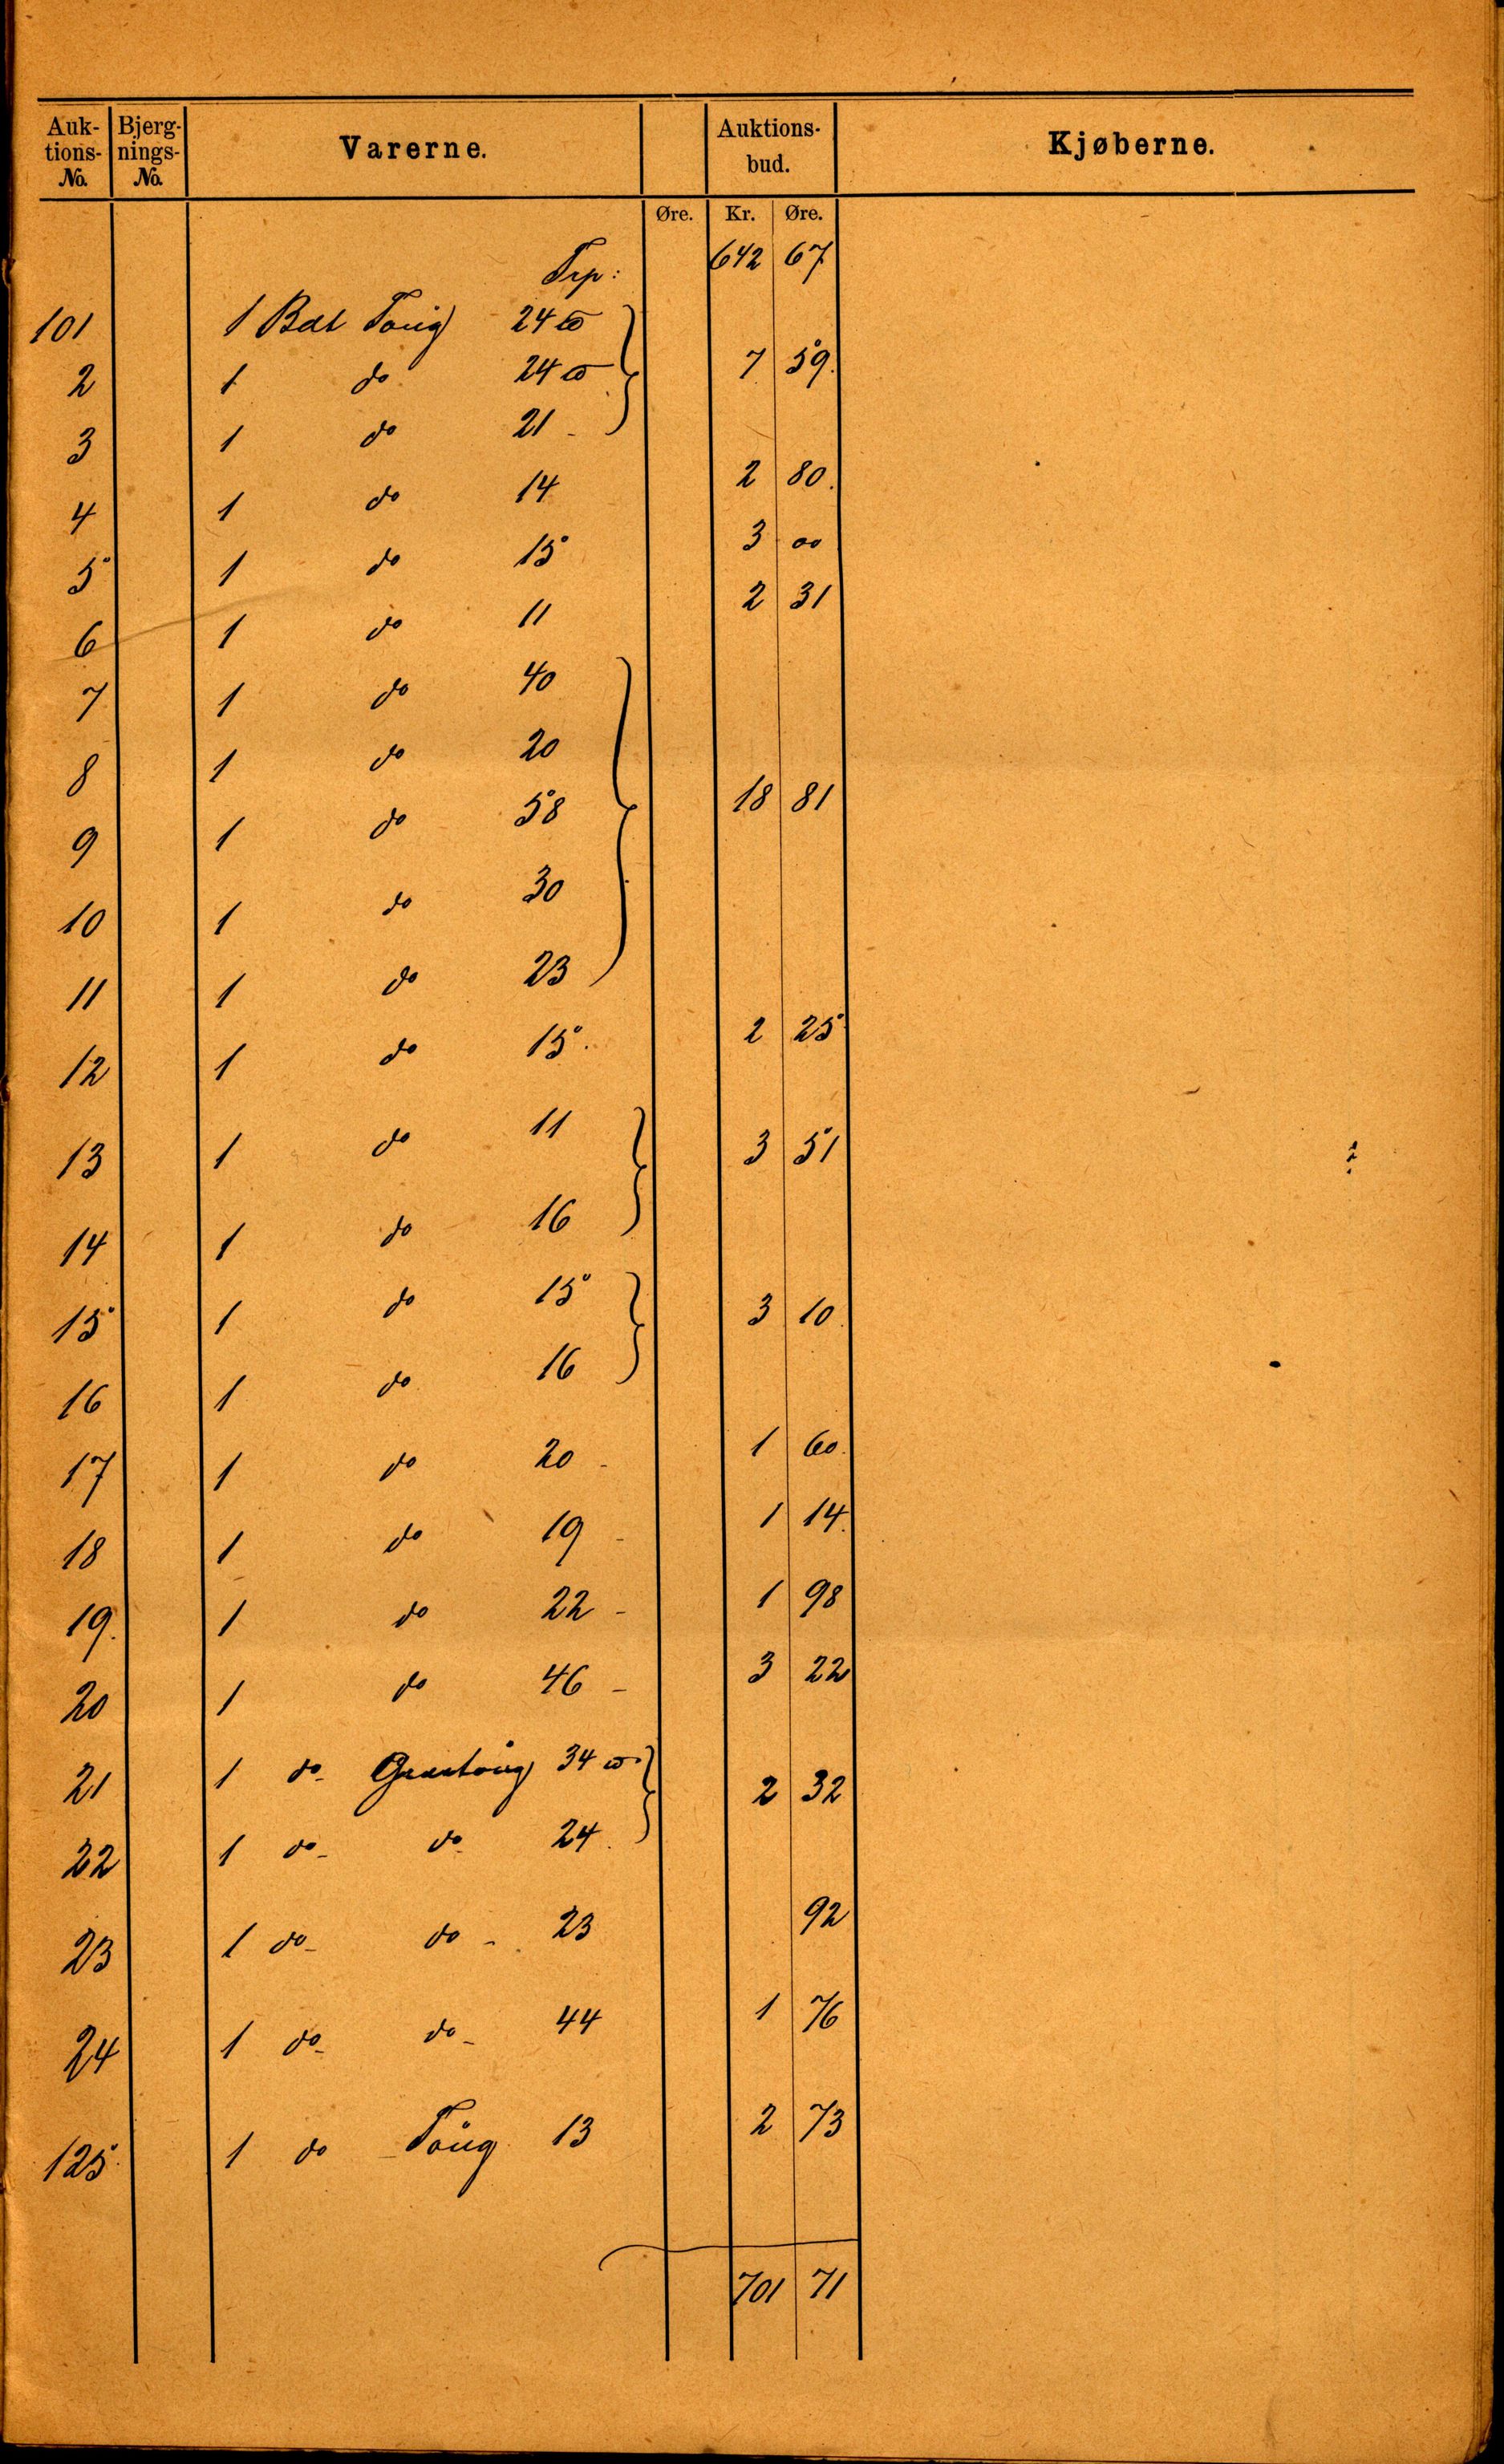 Auk-tions-No. Bjerg-nings-No. Varerne. Auktions-bud. Kjøberne.
Øre. Kr. Øre.
Trp: 642 67
101 1 Bdt Toug 24 ℔
2 1 do 24 ℔ 7 59.
3 1 do 21 -
4 1 do 14 2 80.
5 1 do 15 3 00
6 1 do 11 2 31
7 1 do 40
8 1 do 20
9 1 do 58 18 81
10 1 do 30
11 1 do 23
12 1 do 15. 2 25
13 1 do 11 3 51
14 1 do 16
15 1 do 15 3 10.
16 1 do 16
17 1 do 20 - 1 60.
18 1 do 19 - 1 14.
19. 1 do 22 - 1 98
20 1 do 46 - 3 22
21 1 do- 34 ℔ 2 32
22 1 do- do- 24.
23 1 do- do - 23 92
24 1 do- do- 44 1 76
125. 1 do - Toug 13 2 73
701 71